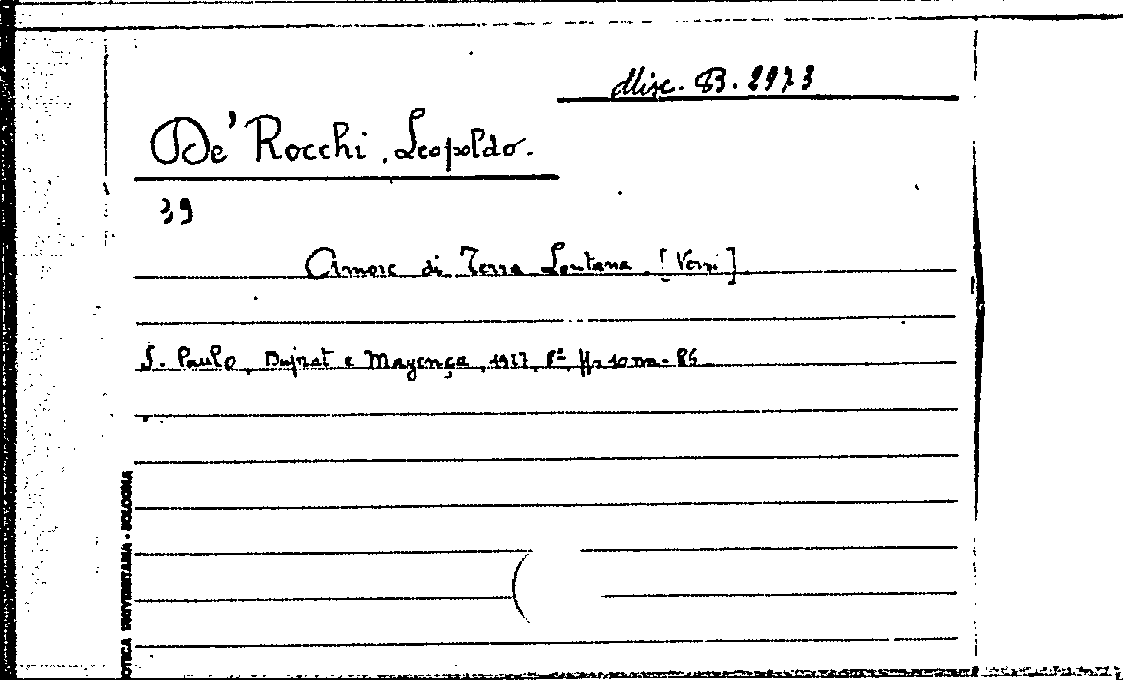 Misc. B. 2973
De' Rocchi, Leopoldo.
39
Amore di Terra Lontana. [Versi]
S. Paulo, e Mayença, 8°
OTECA UNIVERSITARIA - BOLOGNA